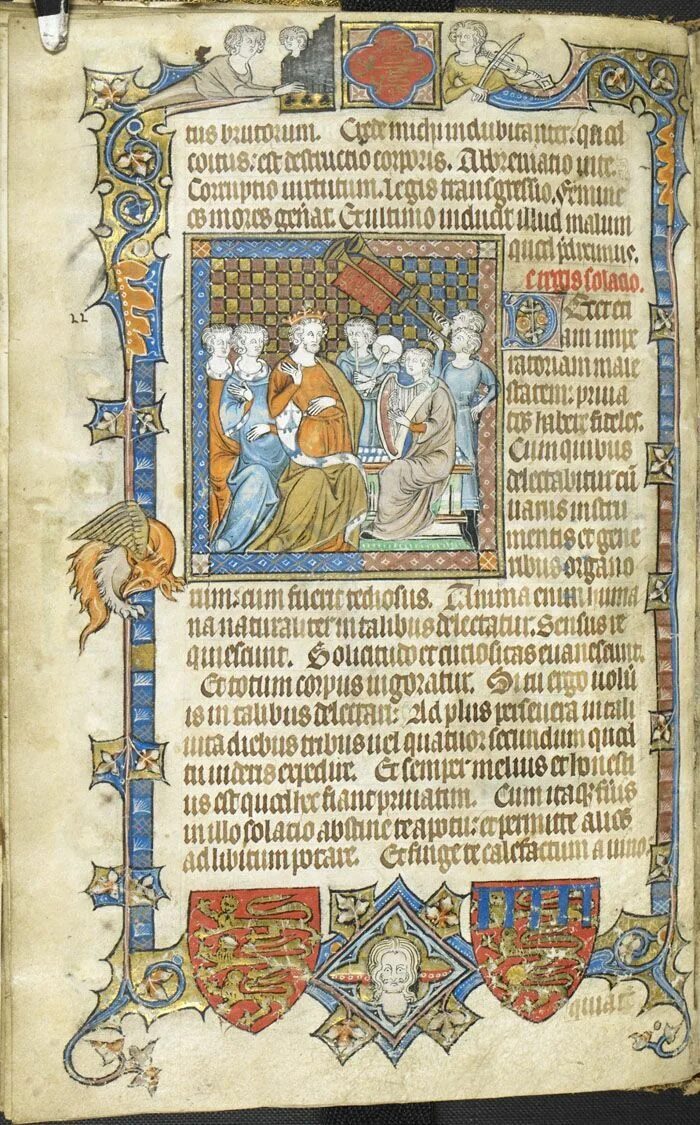 tus brutorum. Crede michi indubitanter: qd̕ il
coitus: est destructio corporis. Abreuiatio uite.
Corruptio uirtutum. Legis transgressio. Femine
os mores g̕enat. Et ultimo inducit illud malum
quod p̕diximus.
e regis solatio.
Decet et
iam impe
ratoriam maie
statem: priua
tos habere fideles.
Cum quibus
delectabitur cū
uariis instru
mentis et gene
ribus organo
rum: cum fuerit tediosus. Anima enim huma
na naturaliter in talibus delectatur. Sensus re
quiescunt. Solicitudo et curiositas euanescunt.
Et totum corpus uigoratur. Si tu ergo uolu̕
is in talibus delectari: Ad plus perseuera in tali
uita diebus tribus uel quatuor secundum quod
tu uideris expedire. Et semper melius et honesti
us est quod hec fiant priuatim. Cum itaq̕ fu̕is
in illo solatio abstine te a potu: et permitte alios
ad libitum potare. Et finge te calefactum a uino
22